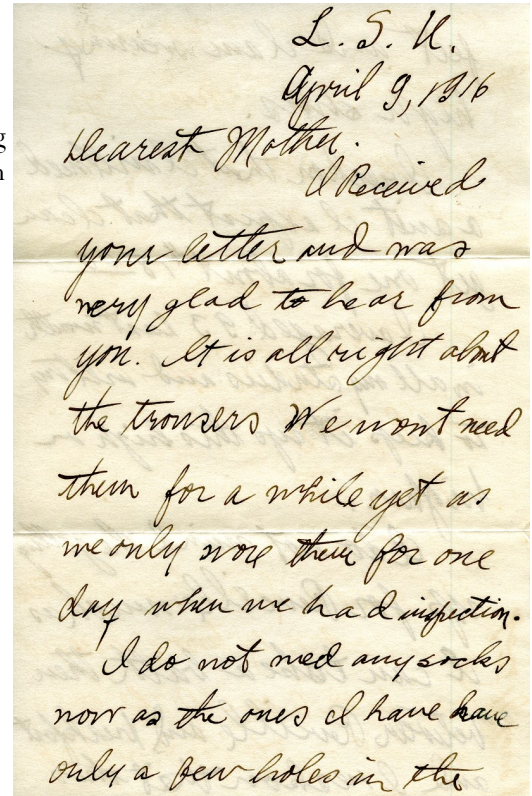 L. S. U.
April 9, 1916
Dearest Mother.
I Received
your letter and was
very glad to hear from
you. It is all right about
the trousers We wont need
them for a while yet as
we only wore them for one
day when we had inspection.
I do not need any socks
now as the ones I have have
only a few holes in the